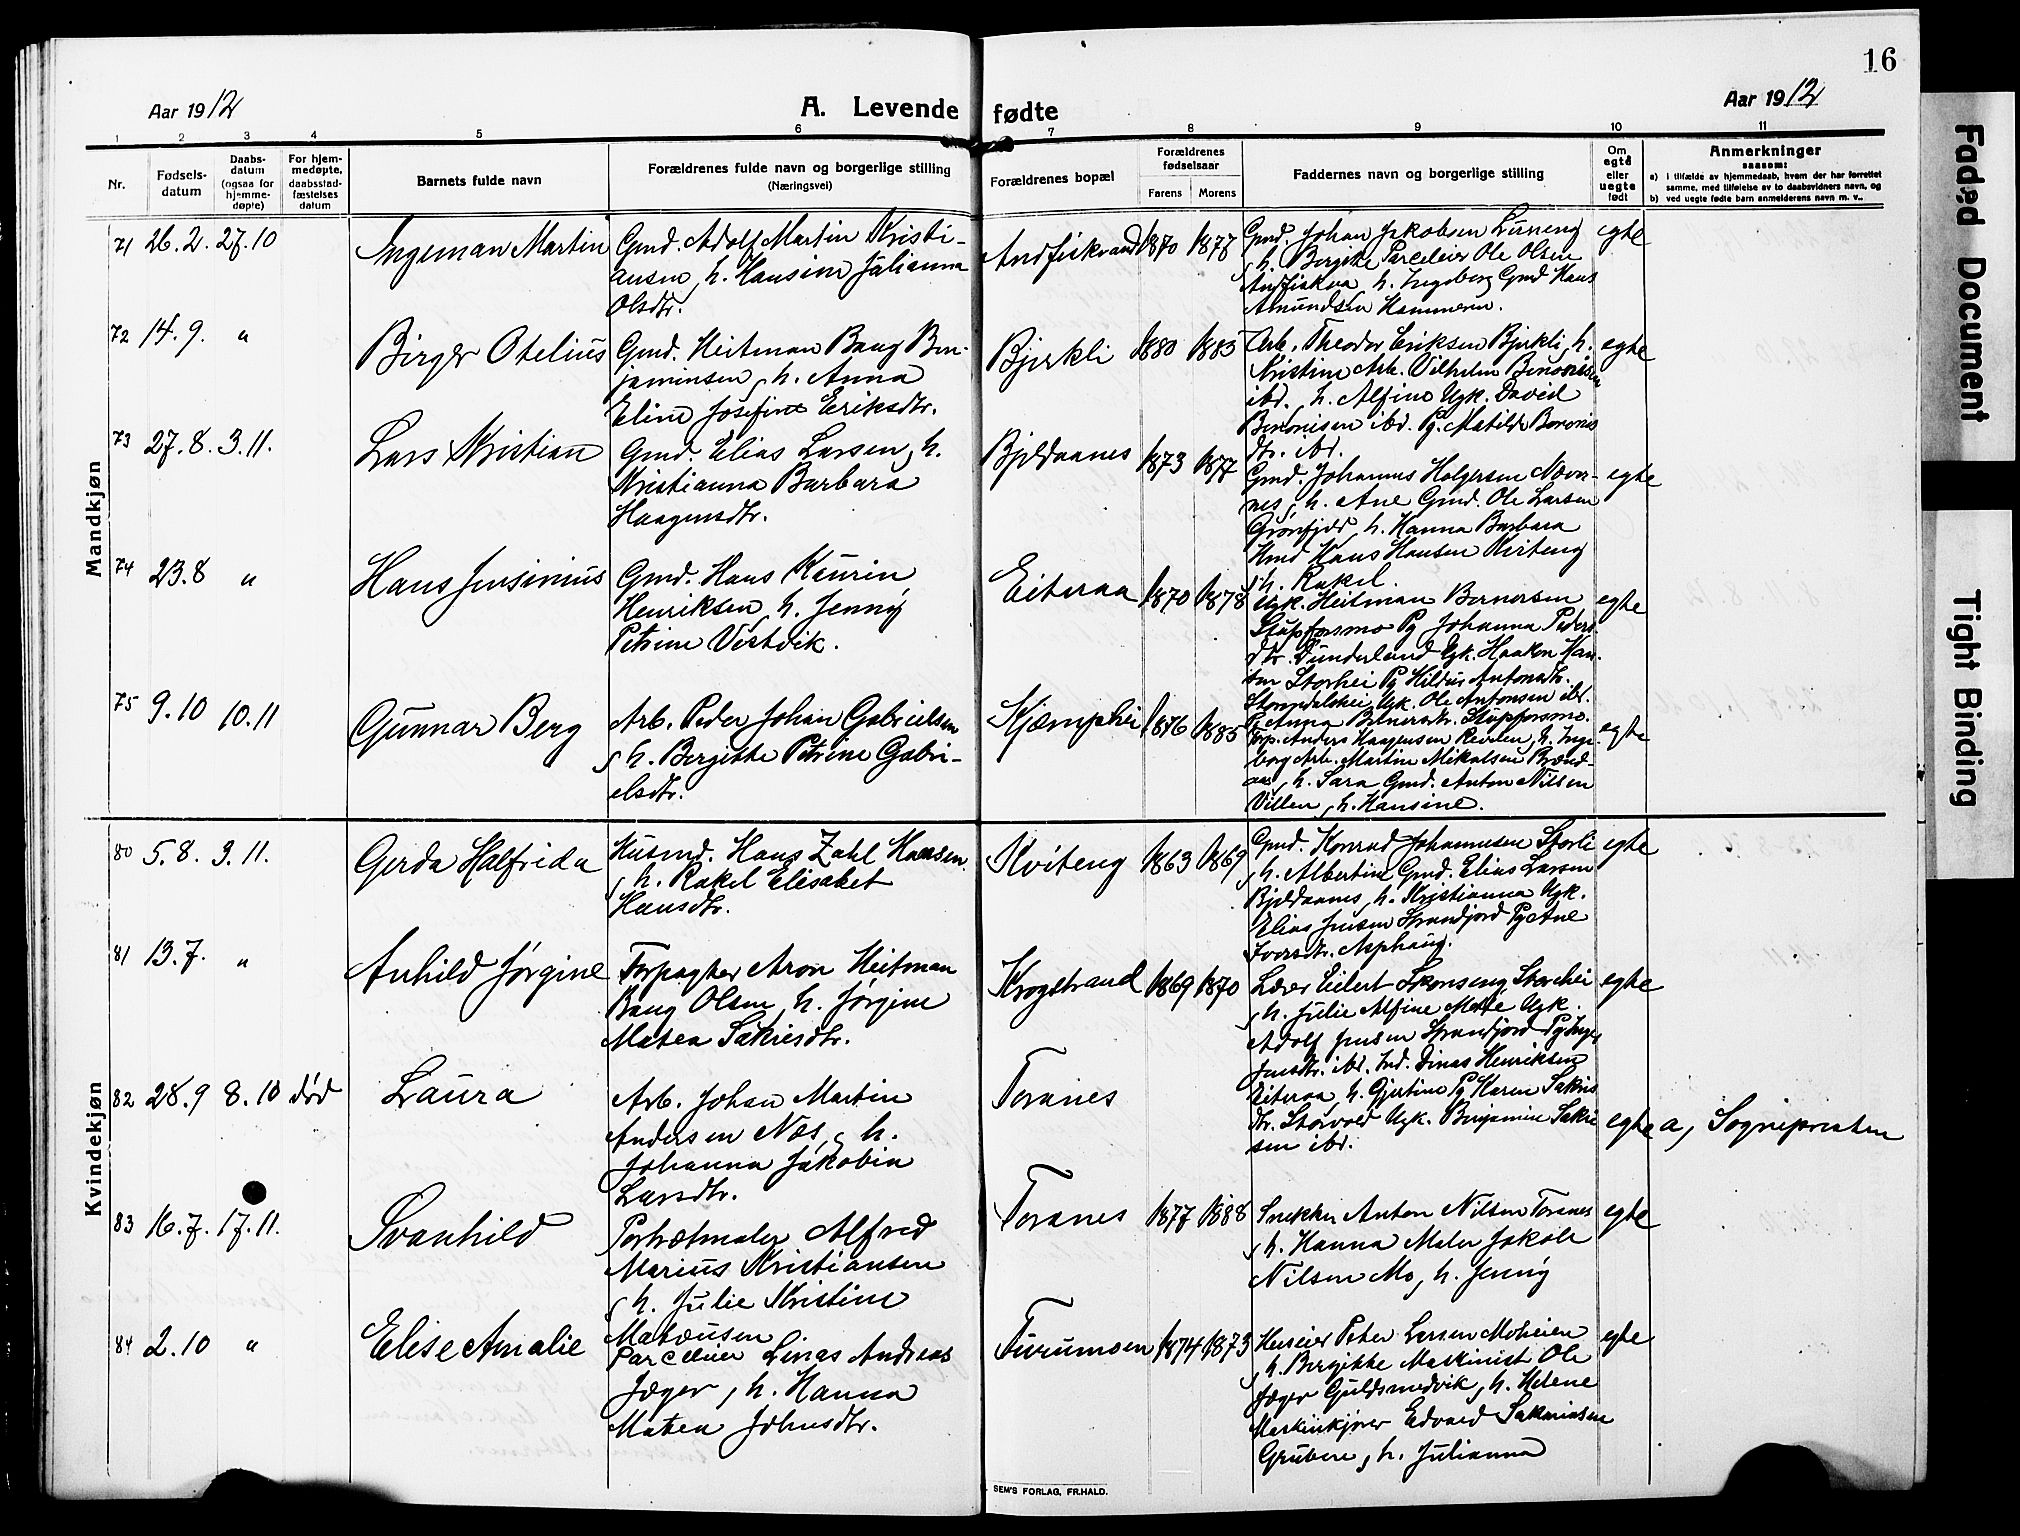 16
Aar 1912
A. Levende fødte
Aar 1912
1 2 3 4 5 6 7 8 9 10 11
Nr.
Fødsels-
datum
Daabs-
datum
(ogsaa for
hjemme-
døpte)
For hjem-
medøpte,
daabsstad-
fæstelses
datum
Barnets fulde navn
Forældrenes fulde navn og borgerlige stilling
(Næringsvei)
Forældrenes bopæl
Forældrenes
fødselsaar
Farens Morens
Faddernes navn og borgerlige stilling
Om
egte
eller
uegte
født
Anmerkninger
saasom:
a) i tilfælde av hjemmedaab, hvem der har forrettet
samme, med tilføielse av to daabsvidners navn, og
b) ved uegte fødte barn anmelderens navn m. v..
Mandkjøn
71 26.2. 27.10
Ingeman Martin
Gmd. Adolf Martin Kristi-
ansen, h. Hansine Julianna
Olsdtr.
Andfiskvand 1870 1877
Gmd. Johan Jakobsen Luneng
, h. Bergitte Parceleier Ole Olsen
Andfiskaa h. Ingeborg Gmd Hans
Amundsen Hammeren.
egte
72 14.9. "
Birger Otelius
Gmd. Heitman Baug Ben-
jaminsen, h. Anna
Eline Josefine Eriksdtr.
Bjerkli 1880 1883
Arb. Theodor Eriksen Bjerkli, h.
Kristine Arb. Vilhelm
ibd., h. Alfine Ugk. David
ibd. Pg. Matilde
dtr. ibd.
egte
73 27.8. 3.11.
Lars Kristian
Gmd. Elias Larsen, h.
Kristianna Barbara
Haagensdtr.
Bjeldaanes 1873 1877
Gmd. Johannes Holgersen Næver-
nes, h. Ane Gmd. Ole Larsen
Grønfjeld, h. Hanna Barbara
Hmd Hans Hansen Kviteng
, h. Rakel.
egte
74 23.8 "
Hans Jensinius
Gmd. Hans Kaurin
Henriksen, h. Jenny
Petrine Vestvik.
Eiteraa 1870 1878
Ugk. Heitman Bernersen
Stupforsmo Pg Johanna Peders-
dtr. Dunderland Ugk. Haakon Han-
sen Storhei Pg Hildur Antonsdtr.
Ugk. Ole Antonsen ibd.
Pg Anna Bernersdtr. Stupforsmo.
egte
75 9.10 10.11
Gunnar Berg
Arb. Peder Johan Gabrielsen
, h. Bergitte Petrine Gabri-
elsdtr.
Kjæmphei 1876 1885
Forp. Anders Haagensen Revelen, h. Inge-
borg Arb. Martin Mikalsen Brænd-
aa, h. Sara Gmd. Anton Nilsen
Villen, h. Hansine.
egte
Kvindekjøn
80 5.8. 3.11.
Gerda Halfrida
Husmd. Hans Zahl Hansen
, h. Rakel Elisabet
Hansdtr.
Kviteng 1863 1869
Gmd. Konrad Johannesen Storli
, h. Albertine Gmd. Elias Larsen
Bjeldaanes, h. Kristianna Ugk.
Elias Jensen Strandjord Pg Ane
Iversdtr. Asphaug.
egte
81 13.7. "
Anhild Jørgine
Forpagter Aron Heitman
Baug Olsen, h. Jørgine
Matea Sakrisdtr.
Krogstrand 1869 1870
Lærer Eilert Skonseng Storhei
, h. Julie Alfine Mette Ugk.
Adolf Jensen Strandjord Pg Inger
Jensdtr. ibd. Ind. Dinas Henriksen
Eiteraa, h. Gjertine Pg Karen Sakris
dtr. Storvold Ugk. Benjamin Sakri
sen ibd.
egte
82 28.9 8.10 død
Laura
Arb. Johan Martin
Andersen Næs, og h.
Johanna Jakobia
Larsdtr.
Toranes
egte a, Sognepresten
83 16.7. 17.11.
Svanhild
Portrætmaler Alfred
Marius Kristiansen
, h. Julie Kristine
Mateusen.
Toranes 1877 1888
Snekker Anton Nilsen Toranes
, h. Hanna Maler Jakob
Nilsen Mo, h. Jenny
egte
84 2.10 "
Elise Amalie
Parceleier Linas Andreas
Jæger, h. Hanna
Matea Johnsdtr.
Furumoen 1874 1873
Huseier Peter Larsen Moheien
, h. Bergitte Maskinist Ole
Jæger Guldsmedvik, h. Helene
Maskinkjører Edvard Sakariasen
Gruben, h. Julianna
egte
SEM'S FORLAG, FR.HALD.
Faded Document
Tight Binding